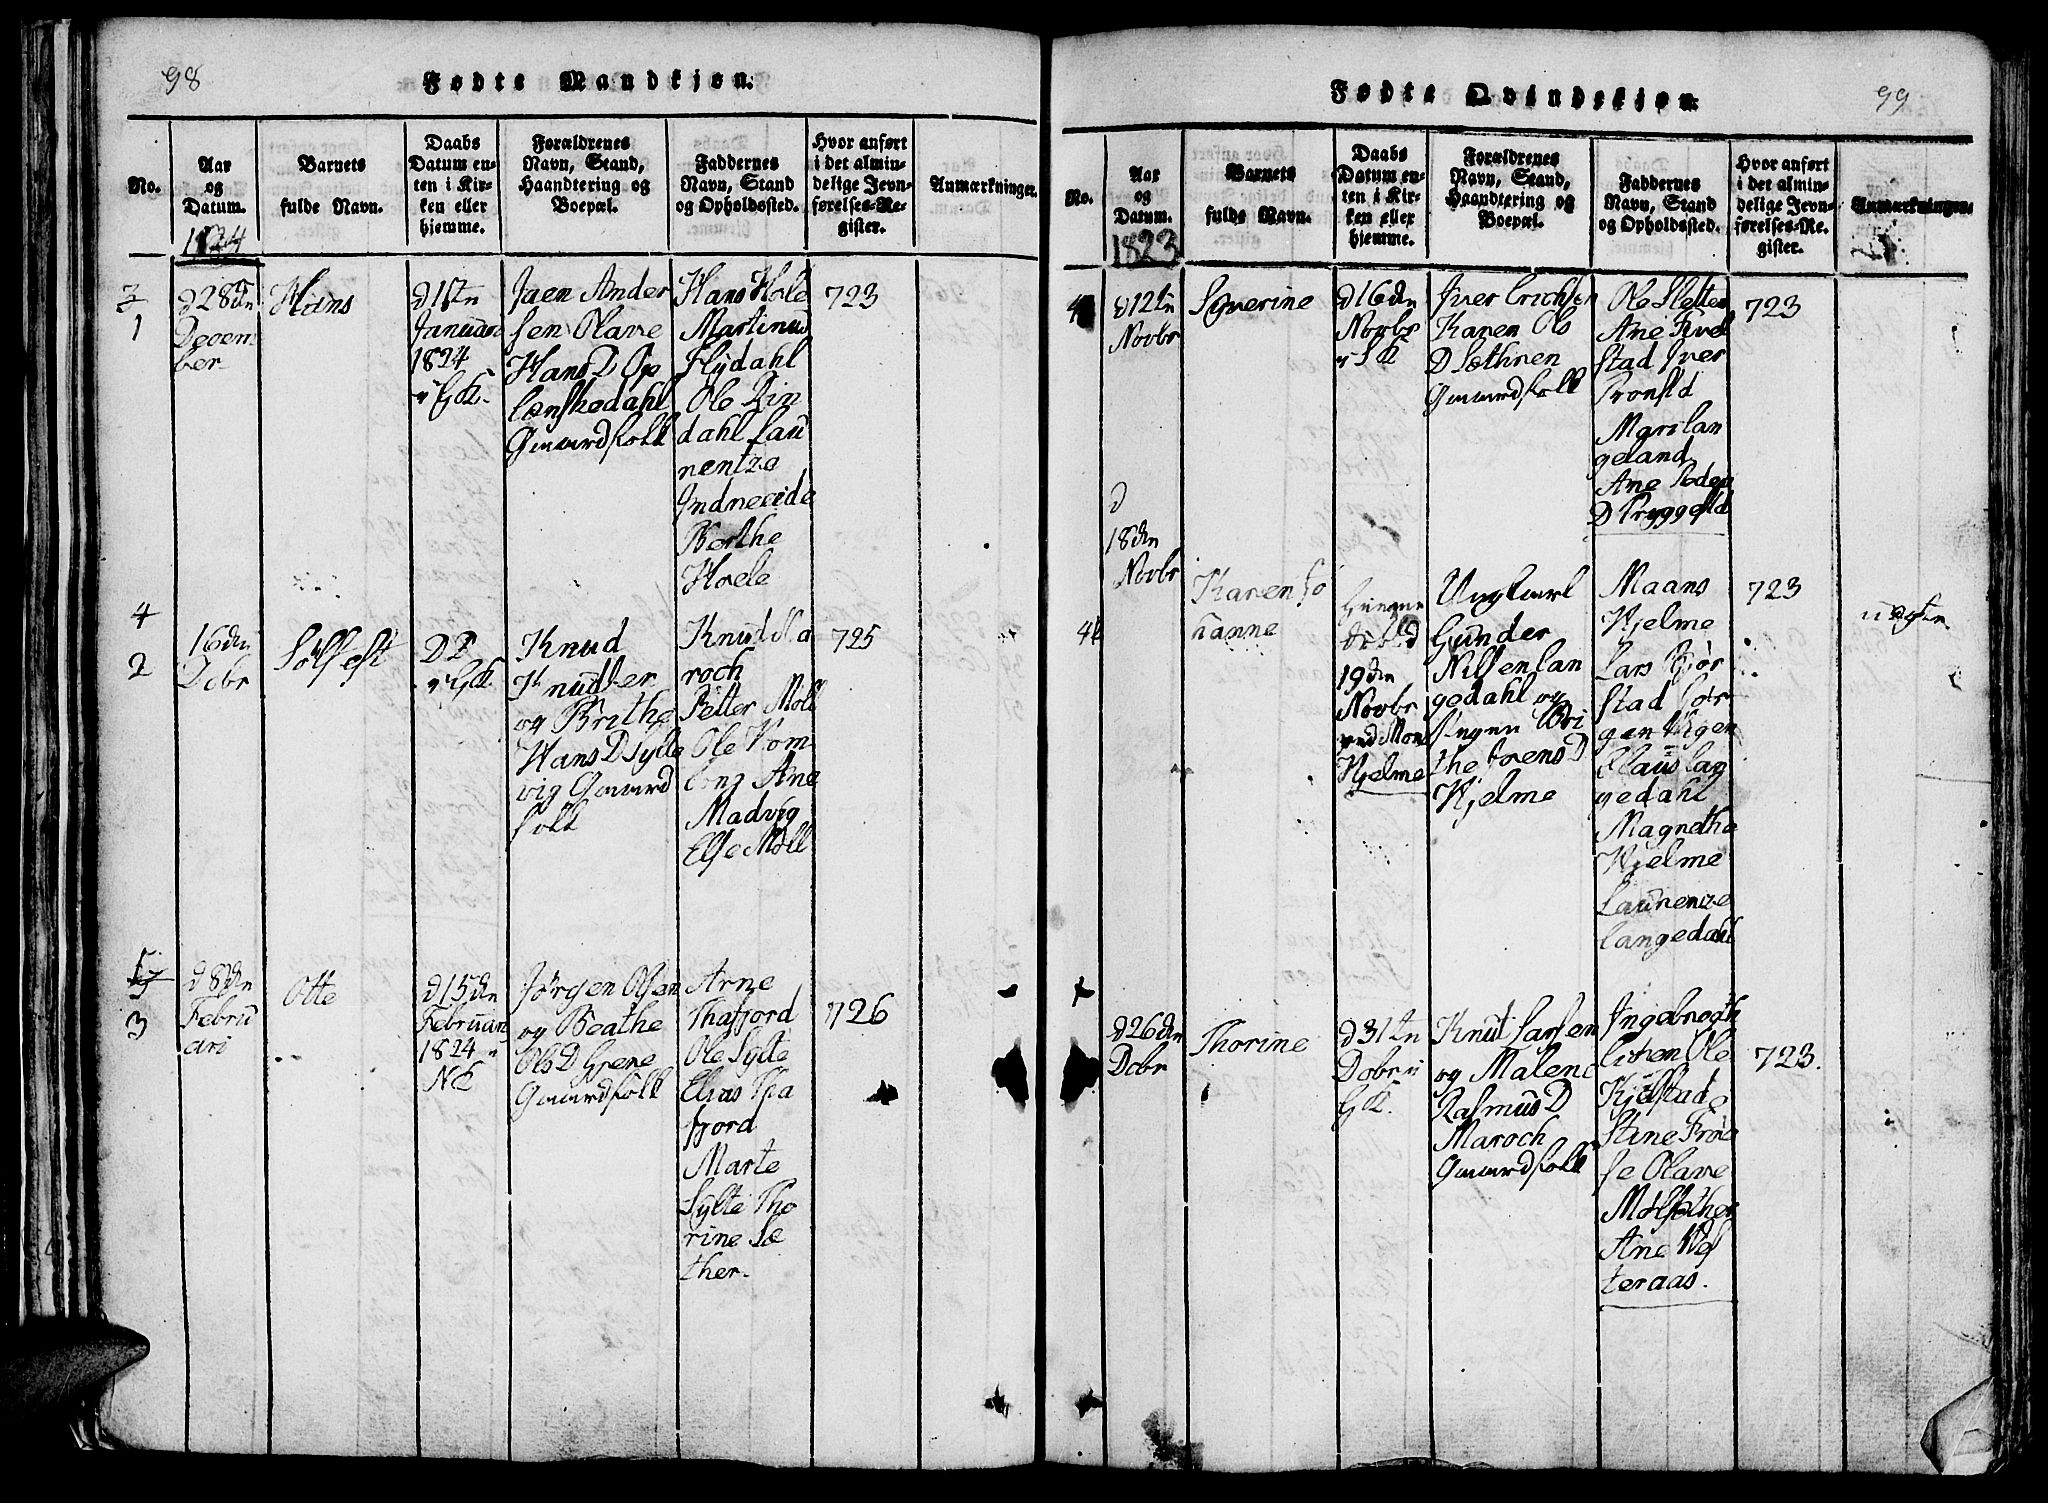 98
Fødte Mandkjøn.
No.
Aar
og
Datum.
1824
Barnets
fulde Navn.
Daabs
Datum en-
ten i Kir-
ken eller
hjemme.
Forældrenes
Navn, Stand,
Haandtering og
Boepæl.
Faddernes
Navn, Stand
og Opholdssted.
Hvor anført
i det almin-
delige Jevn-
førelses-Re-
gister.
Anmærkninger.
3
1
d 28de
Decem
ber
Hans
d 1ste
Januari
1824
Jaen Ander
sen Olave
Hans D
Gaardfolk
Hans Hole
Martinus
Flydahl
Ole Rin
dahl Lau
rentze
Indreeide
Berthe
Hoele
723
4
2
16dn
Dcbr
Solfest
Knud
Knudsen
og Brithe
Hans D Sylte
vig Gaard
folk
Knud Ma
roch
Petter Moll
Ole
Ane
Madvig
Else Moll
725
5
3
d 8dn
Febru
ari
Otte
d 15dn
Februari
1824
Jørgen Olsen
og Beathe
Ols D Gjere
Gaardfolk
Arne
Thafjord
Ole Sylte
Elias Tha
fjord
Marte
Sylte Tho
rine Sæ
ther
726
99
Fødte Qvindekjøn.
No.
Aar
og
Datum.
1823
Barnets
fulde Navn.
Daabs
Datum en-
ten i Kir-
ken eller
hjemme.
Forældrenes
Navn, Stand,
Haandtering og
Boepæl.
Faddernes
Navn, Stand
og Opholdssted.
Hvor anført
i det almin-
delige Jevn-
førelses-Re-
gister.
Anmærkninger.
d 12te
Novbr
Syverine
d 16dn
Novbr
Iver Erichsen
Karen Ols
D Sæthren
Gaardfolk
Ole Sletten
Ane
stad Iver
Mari Lan
geland
Ane Peder
D
723
d
18dn
Novbr
Karen Jo
hanne
19dn
Novbr
Hjelme
Ungkarl
Gunder
Nilsen Lan
gedahl og
Pigen Bri
the Ivers D
Hjelme
Maans
Hjelme
Lars
stad Jør
gen
Claus Lan
gedahl
Magnethe
Hjelme
Laurenze
Langedahl
723
uægte
d 26dn
Dcbr
Thorine
d 31te
Dcbr i
Knut Larsen
og Malene
Rasmus D
Maroch
Gaardfolk
Ingebregth
Ole
Stine Frø
se Olave
Ane
teraas.
723.